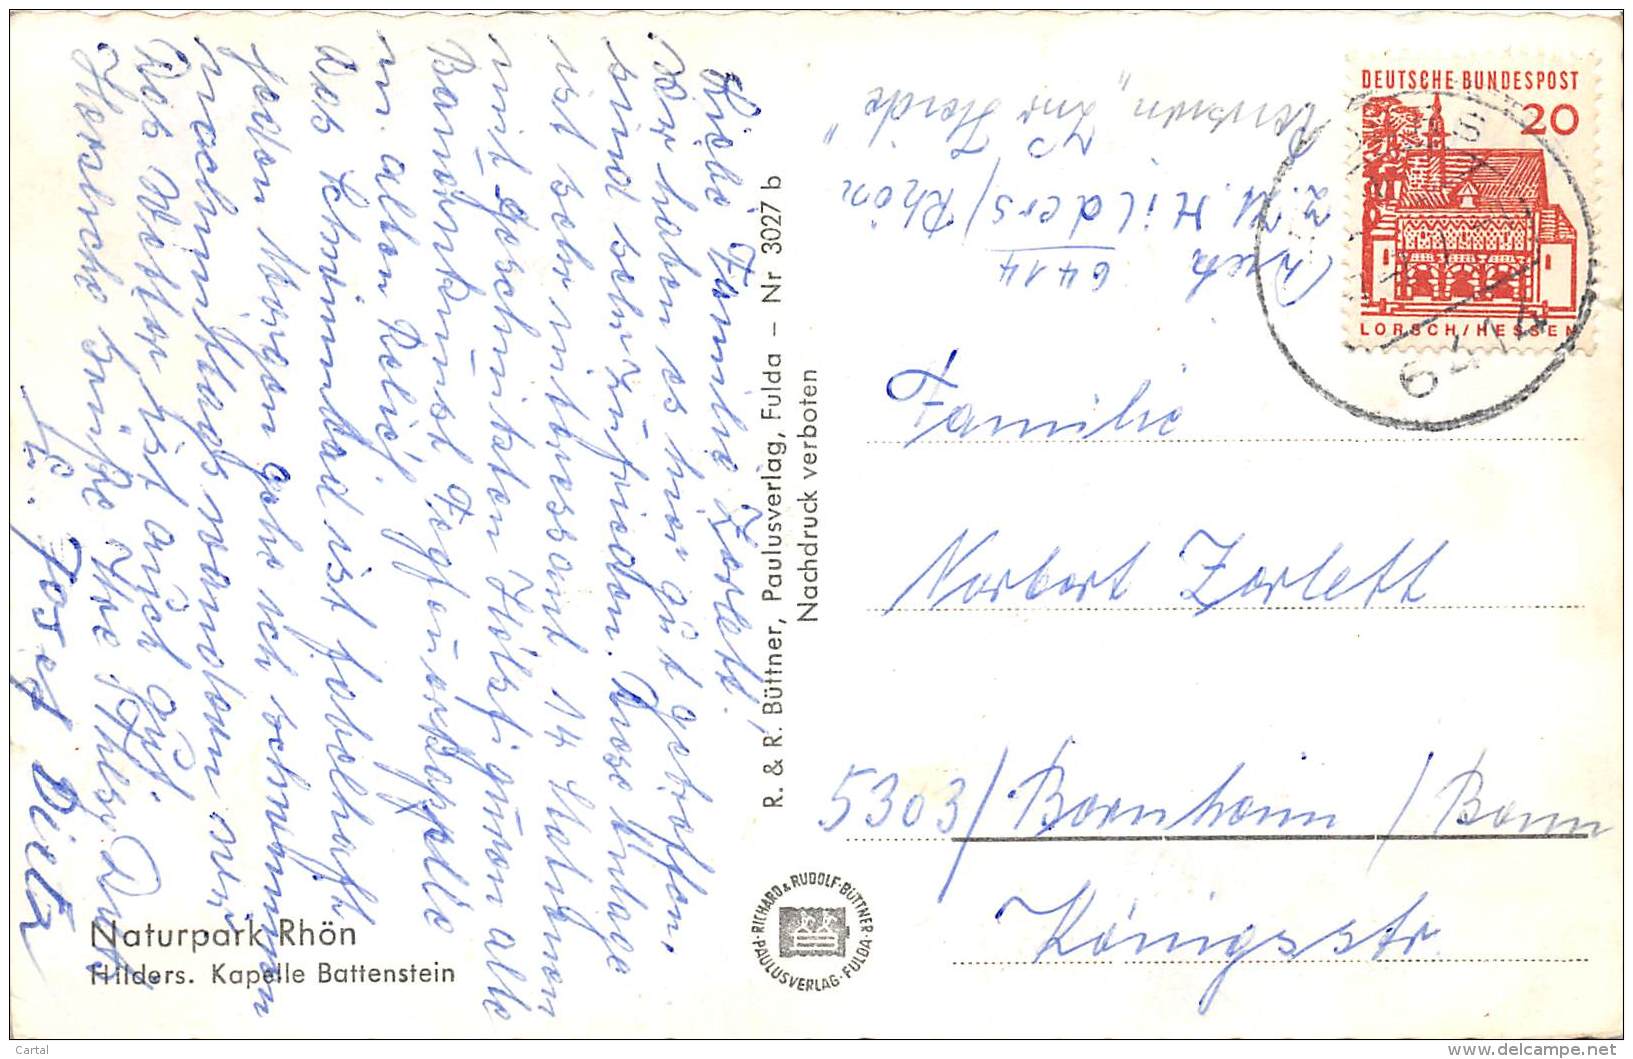 Liebe Familie Zorlett!
Wir haben es hier gut getroffen,
sind sehr zufrieden. Diese Anlage
ist sehr interessant 14 Stationen
mit geschnitzten Holzfiguren alle
Baumörtrümst Fegfeuerkapelle
m. alten Relief.
Das Schwimmbad ist fabelhaft
jeden Morgen gehe ich schwimmen
nachmittags wandern wir
Das Wetter ist auch gut.
Herzliche Grüße Ihre
u. Josef Dietz
Naturpark Rhön
Hilders. Kapelle Battenstein
R. & R. Büttner, Paulusverlag, Fulda – Nr 3027 b
Nachdruck verboten
RICHARD & RUDOLF BÜTTNER · PAULUSVERLAG · FULDA ·
DEUTSCHE BUNDESPOST
20
LORSCH/HESSEN
6414
6414
z. Zt. Hilders/Rhön
Pension „Zur Heide"
Familie
Norbert Zorlett
5303/Bornheim / Bonn
Königsstr.
Cartal
www.delcampe.net